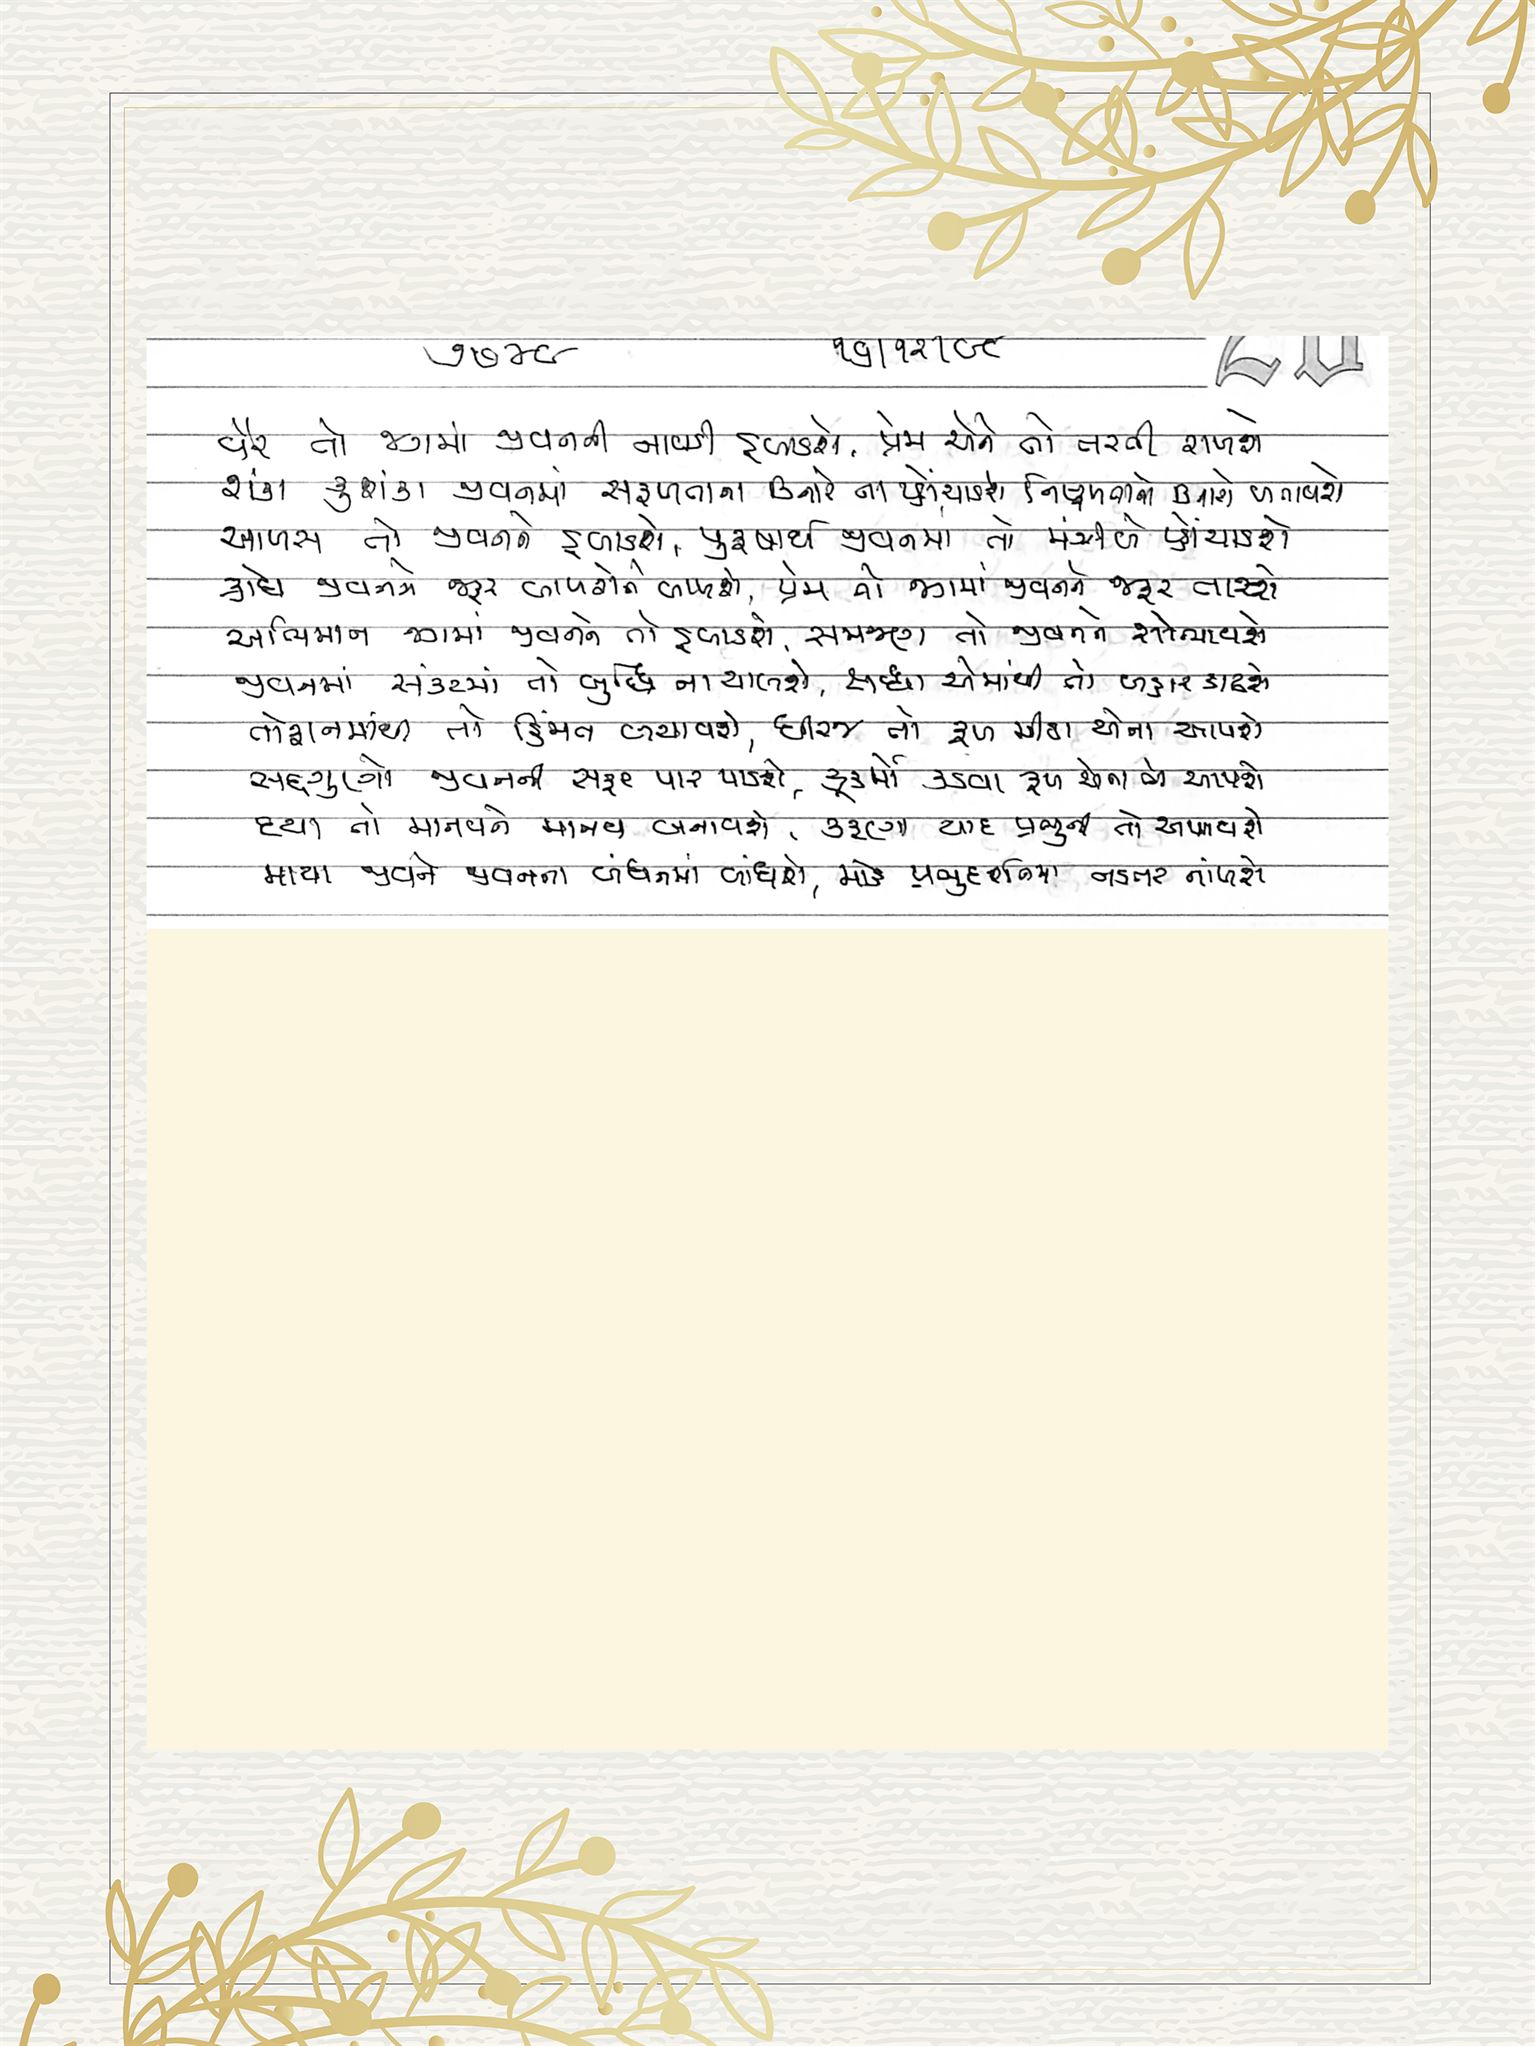 ૭૭૪૯ ૧૬/૧૨/૯૯
વૈર તો જગમાં જીવનની નાવડી ડૂબાડશે, પ્રેમ એને તો તરતી રાખશે
શંકા કુશંકા જીવનમાં સફળતાના કિનારે ના પ્હોંચાડશે નિષ્ફળતાનો કિનારો બતાવશે
આળસ તો જીવનને ડૂબાડશે, પુરૂષાર્થ જીવનમાં તો મંઝીલે પ્હોંચાડશે
ક્રોધ જીવનને જરૂર બાળશેને બાળશે, પ્રેમ તો જગમાં જીવનને જરૂર તારશે
અભિમાન જગમાં જીવનને તો ડૂબાડશે, સમજણ તો જીવનને શોભાવશે
જીવનમાં સંકટમાં તો બુદ્ધિ ના ચાલશે, શ્રદ્ધા એમાંથી તો બહાર કાઢશે
તોફાનમાંથી તો હિંમત બચાવશે, ધીરજ તો ફળ મીઠા એના આપશે
સદ્દગુણો જીવનની સફર પાર પાડશે, દુષ્કર્મો કડવા ફળ એના તો આપશે
દયા તો માનવને માનવ બનાવશે, કરૂણા યાદ પ્રભુની તો અપાવશે
માયા જીવને જીવનના બંધનમાં બાંધશે, મોહ પ્રભુદર્શનમાં નડતર નાંખશે